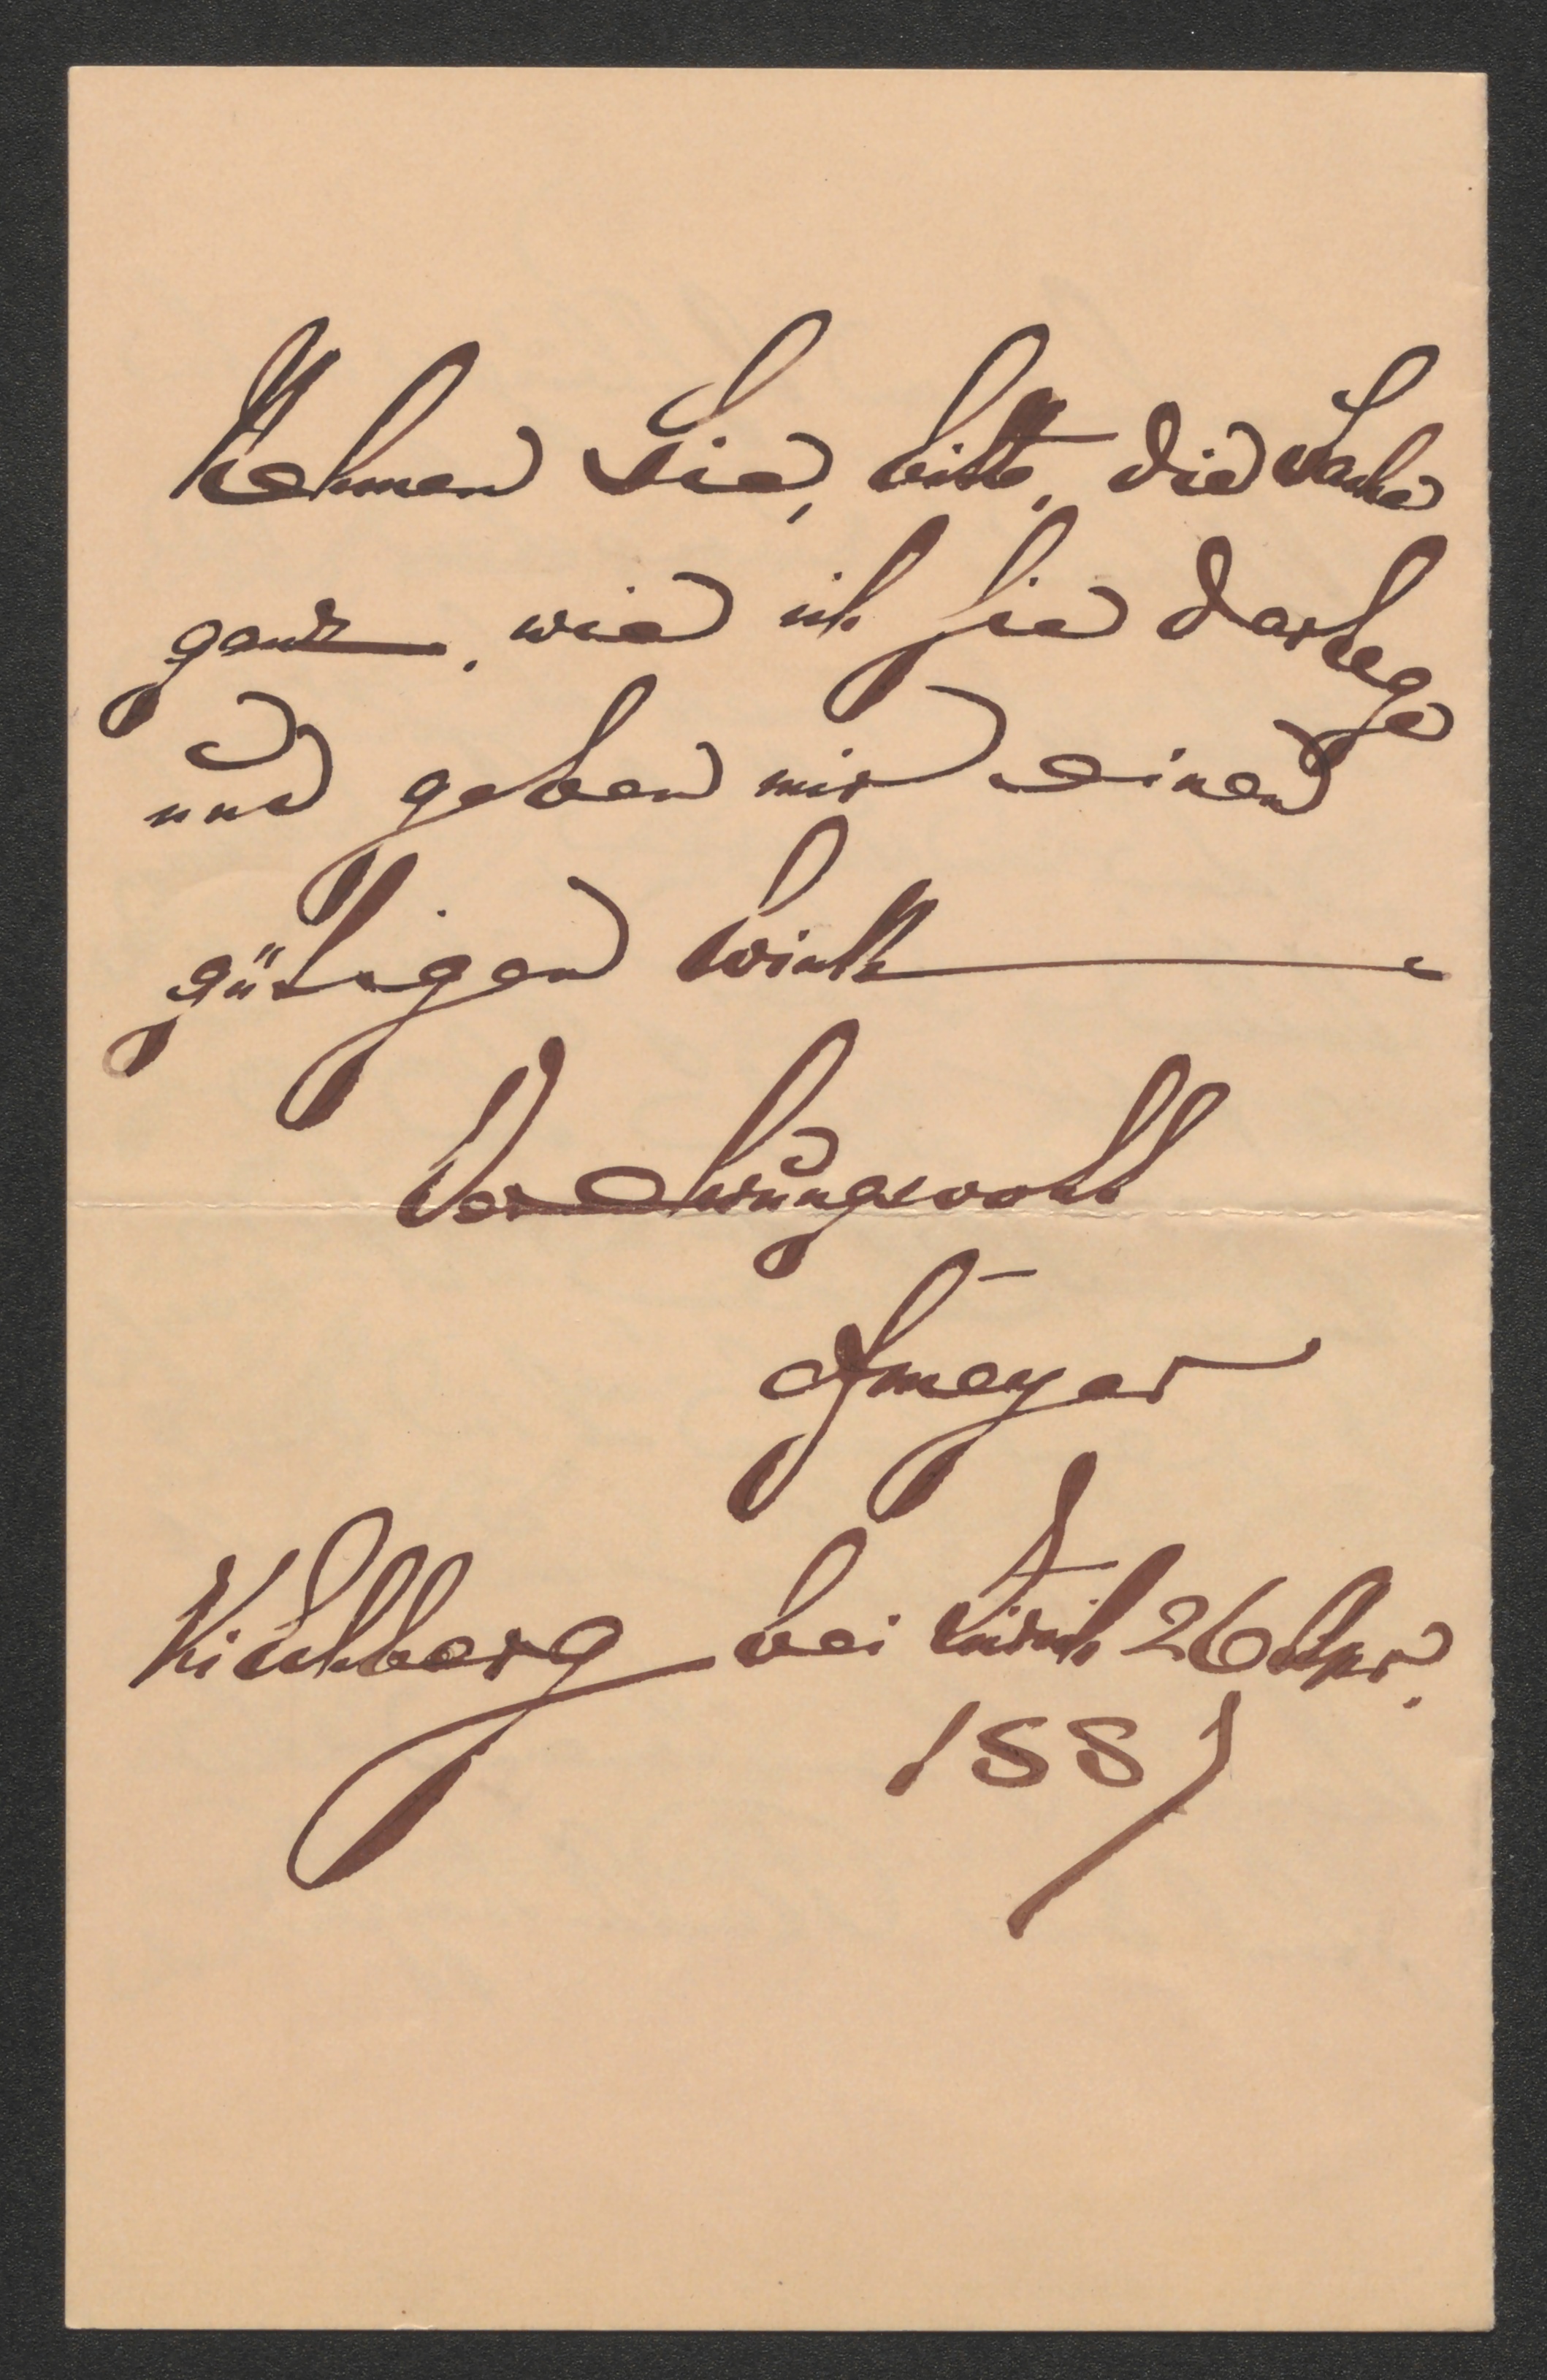 Nehmen Sie, bitte, die Sache
ganz, wie ich sie darlege
und geben mir einen
gütigen Wink
Verehrungsvoll
CFMeyer
Kilchberg bei Zürich 26 Apr.
1881